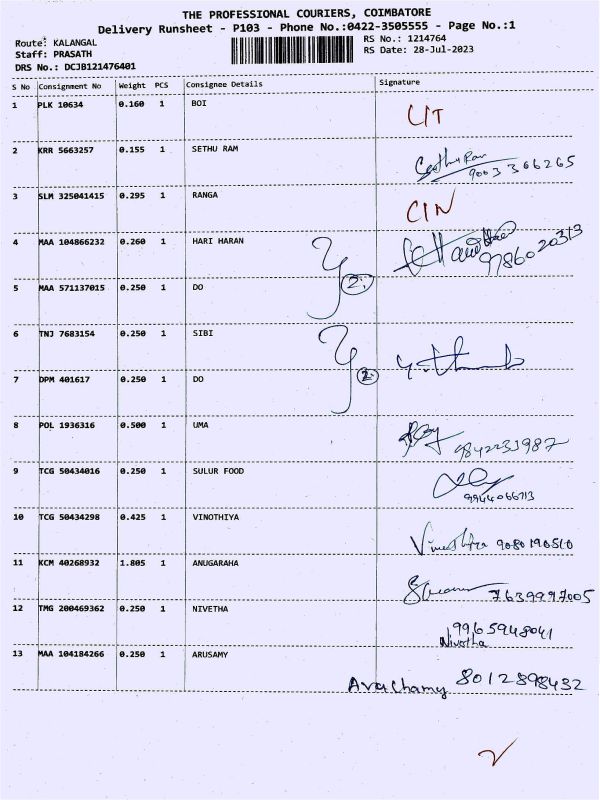 THE PROFESSIONAL COURIERS, COIMBATORE
Delivery Runsheet - P103 - Phone No.:0422-3505555 - Page No.:1
Route: KALANGAL
RS No.: 1214764
Staff: PRASATH
RS Date: 28-Jul-2023
DRS No.: DCJB121476401
S No Consignment No Weight PCS Consignee Details Signature
1 PLK 10634 0.160 1 BOI
2 KRR 5663257 0.155 1 SETHU RAM
9003 366265
3 SLM 325041415 0.295 1 RANGA
4 MAA 104866232 0.260 1 HARI HARAN
9786020313
5 MAA 571137015 0.250 1 DO
2
6 TNJ 7683154 0.250 1 SIBI
7 DPM 401617 0.250 1 DO
2
8 POL 1936316 0.500 1 UMA
9842231987
9 TCG 50434016 0.250 1 SULUR FOOD
10 TCG 50434298 0.425 1 VINOTHIYA
9080190510
11 KCM 40268932 1.805 1 ANUGARAHA
7639997005
12 TMG 200469362 0.250 1 NIVETHA
9965948041
Nivetha
13 MAA 104184266 0.250 1 ARUSAMY
8012898432